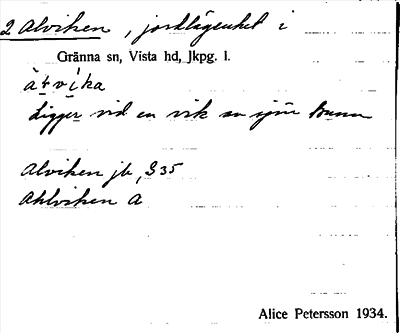 2 Alviken, jordlägenhet i
Gränna sn, Vista hd, Jkpg. l.
Ligger vid en vik av sjön Bunn
Alviken jb, 335
Ahlviken A
Alice Petersson 1934.